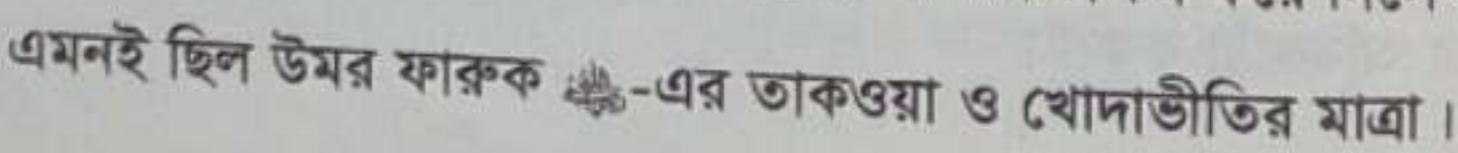 এমনই ছিল উমর ফারুক ﷺ-এর তাকওয়া ও খোদাভীতির মাত্রা।